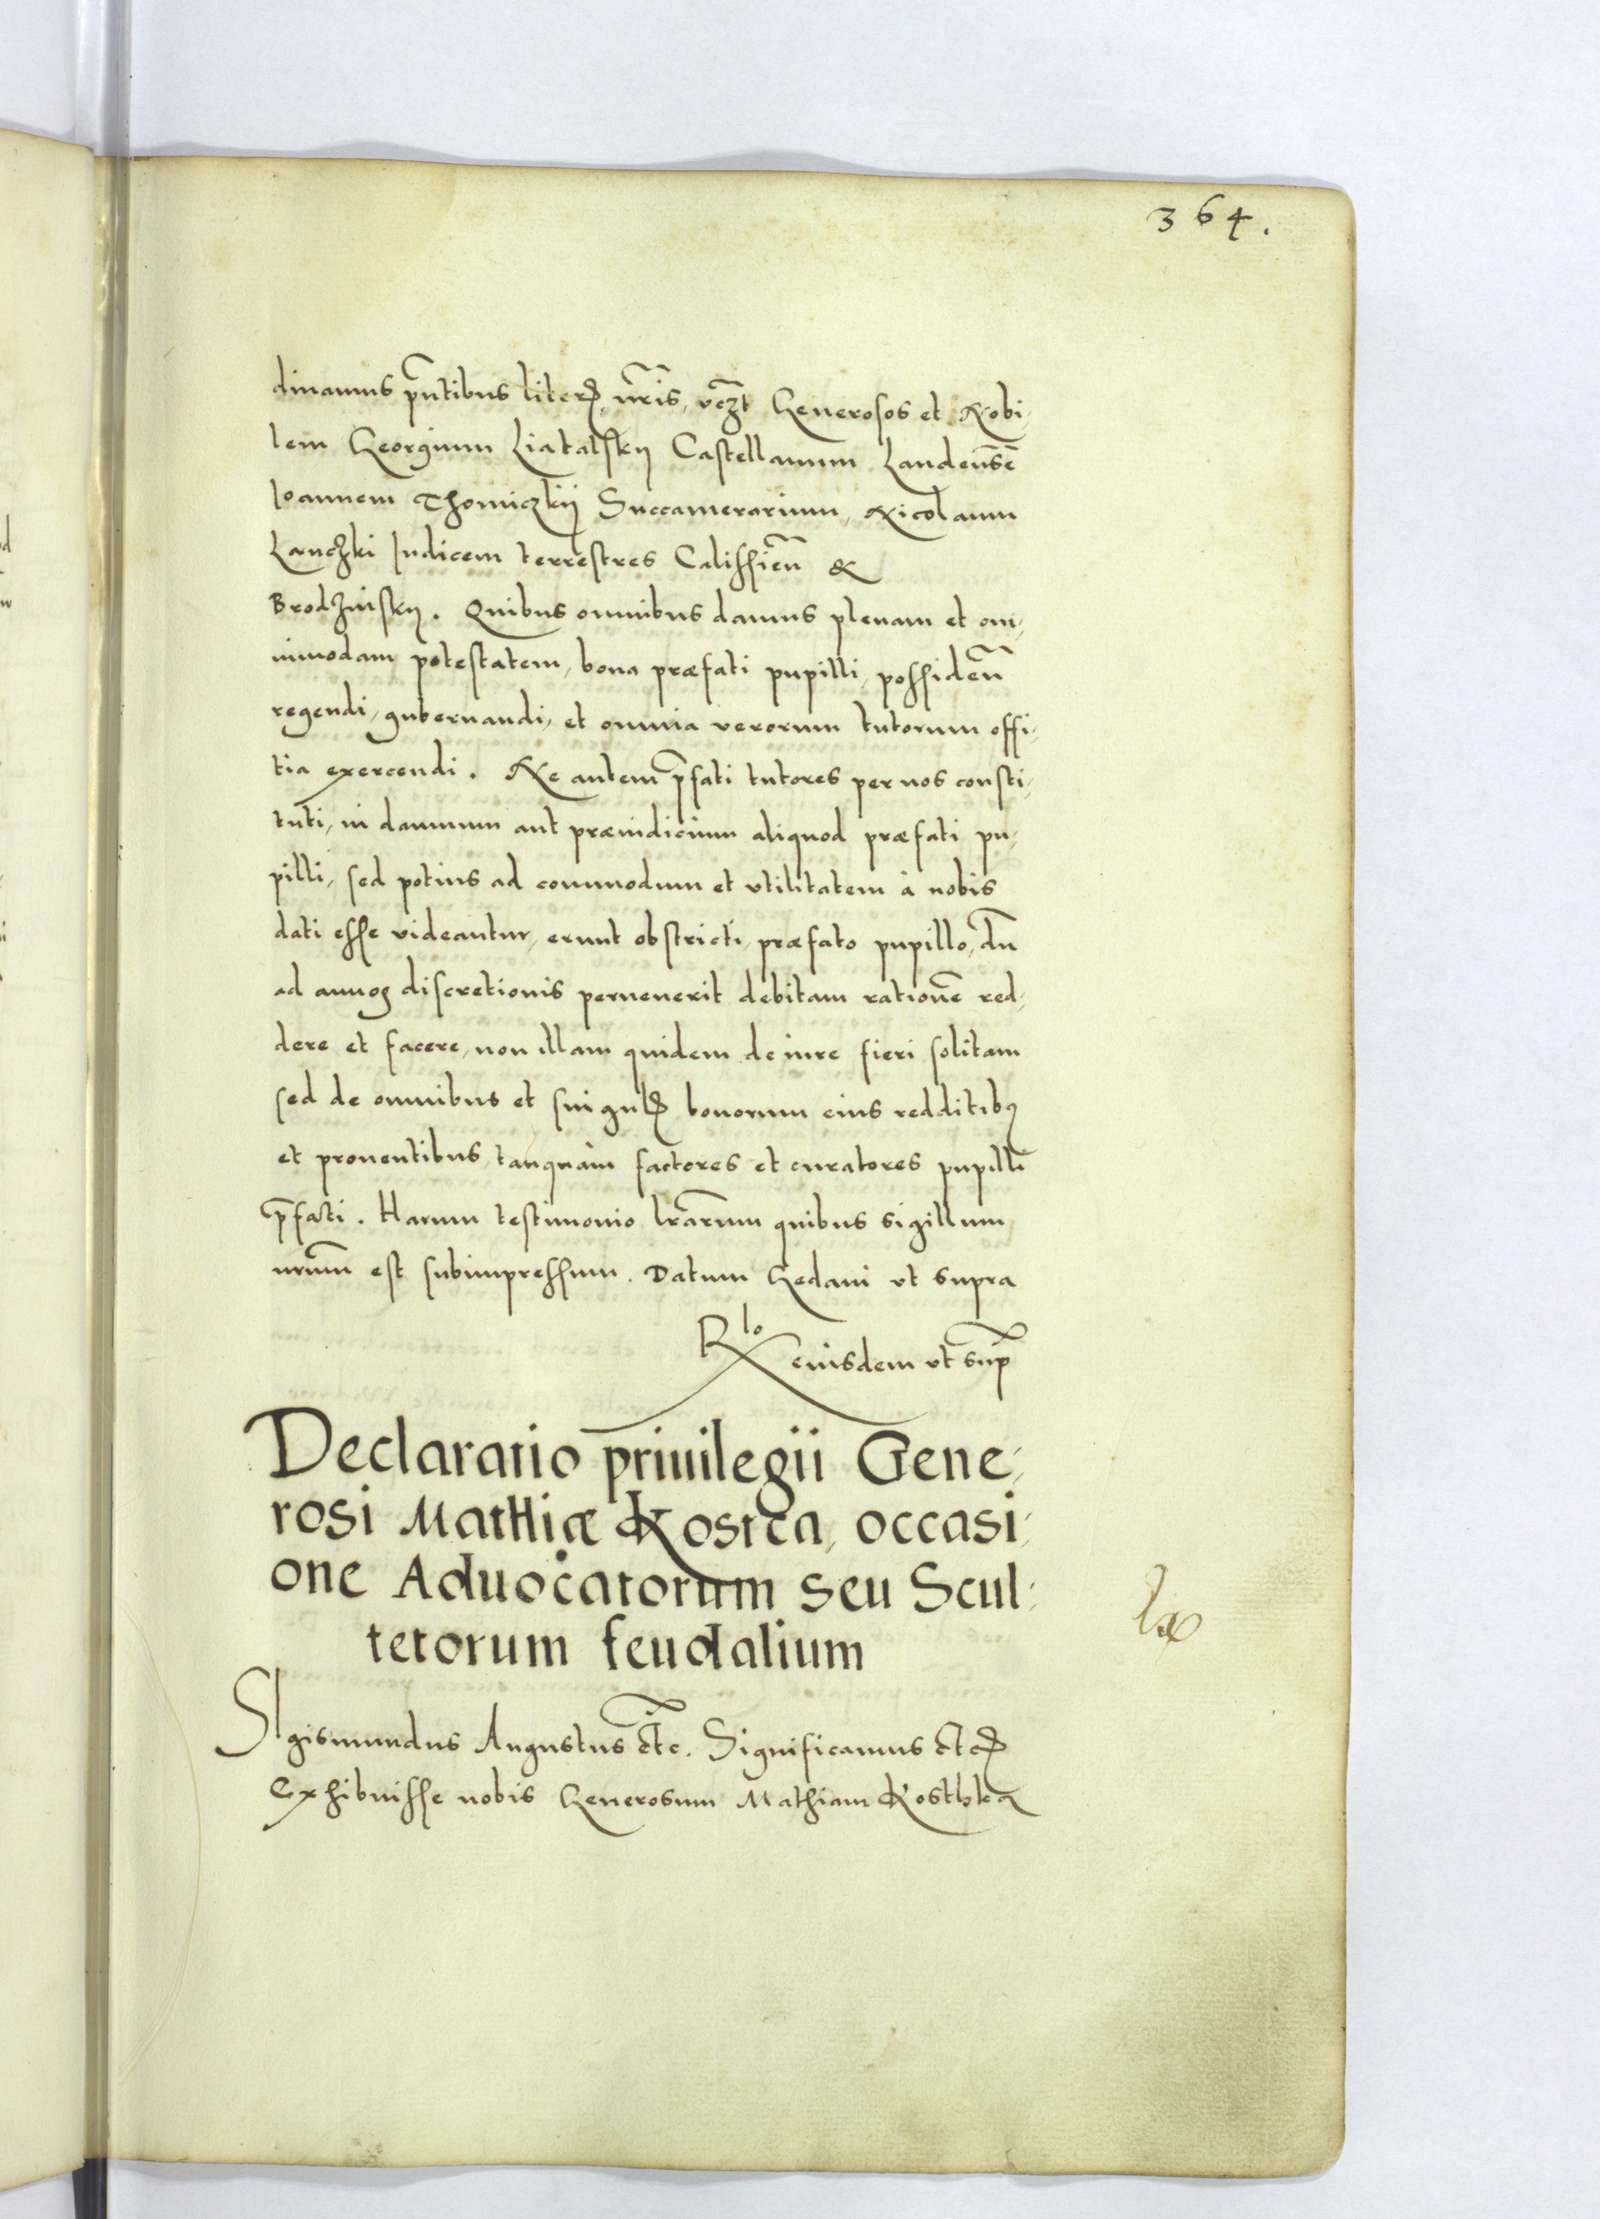 364.
dinamus pñtibus literꝭ, nr̃is, vꝫt Generosos et Nobi-
lem Georgium Liatalskÿ Castellanum Landens̃e
Ioannem Thomiczkij Succamerarium, Nicolaum
Lanczki Iudicem terrestres Calissieñ &
Brodzinskÿ. Quibus omnibus damus plenam et om-
nimodam potestatem, bona præfati pupilli, possideñ
regendi, gubernandi, et omnia verorum tutorum offi-
tia exercendi. Ne autem p̃fati tutores per nos consti-
tuti, in damnum aut præiudicium aliquod præfati pu-
pilli, sed potius ad commodum et vtilitatem à nobis
dati esse videantur, erunt obstricti, præfato pupillo, dũ
ad annos discretionis peruenerit debitam rationẽ red-
dere et facere, non illam quidem de iure fieri solitam
sed de omnibus et singulꝭ bonorum eius redditibꝰ
et prouentibus, tanquàm factores et curatores pupilli
p̃fati. Harum testimonio lr̃arum quibus sigillum
nr̃um est subimpressum. Datum Gedani vt supra
Rlo eiusdem vt sup̃
Declaratio priuilegii Gene-
rosi Matthiæ Kostca, occasi-
one Aduocatorum seu Scul-
tetorum feudalium
SIgismundus Augustus etc. Significamus etcꝭ
Exhibuisse nobis Generosum Mathiam Kosthka